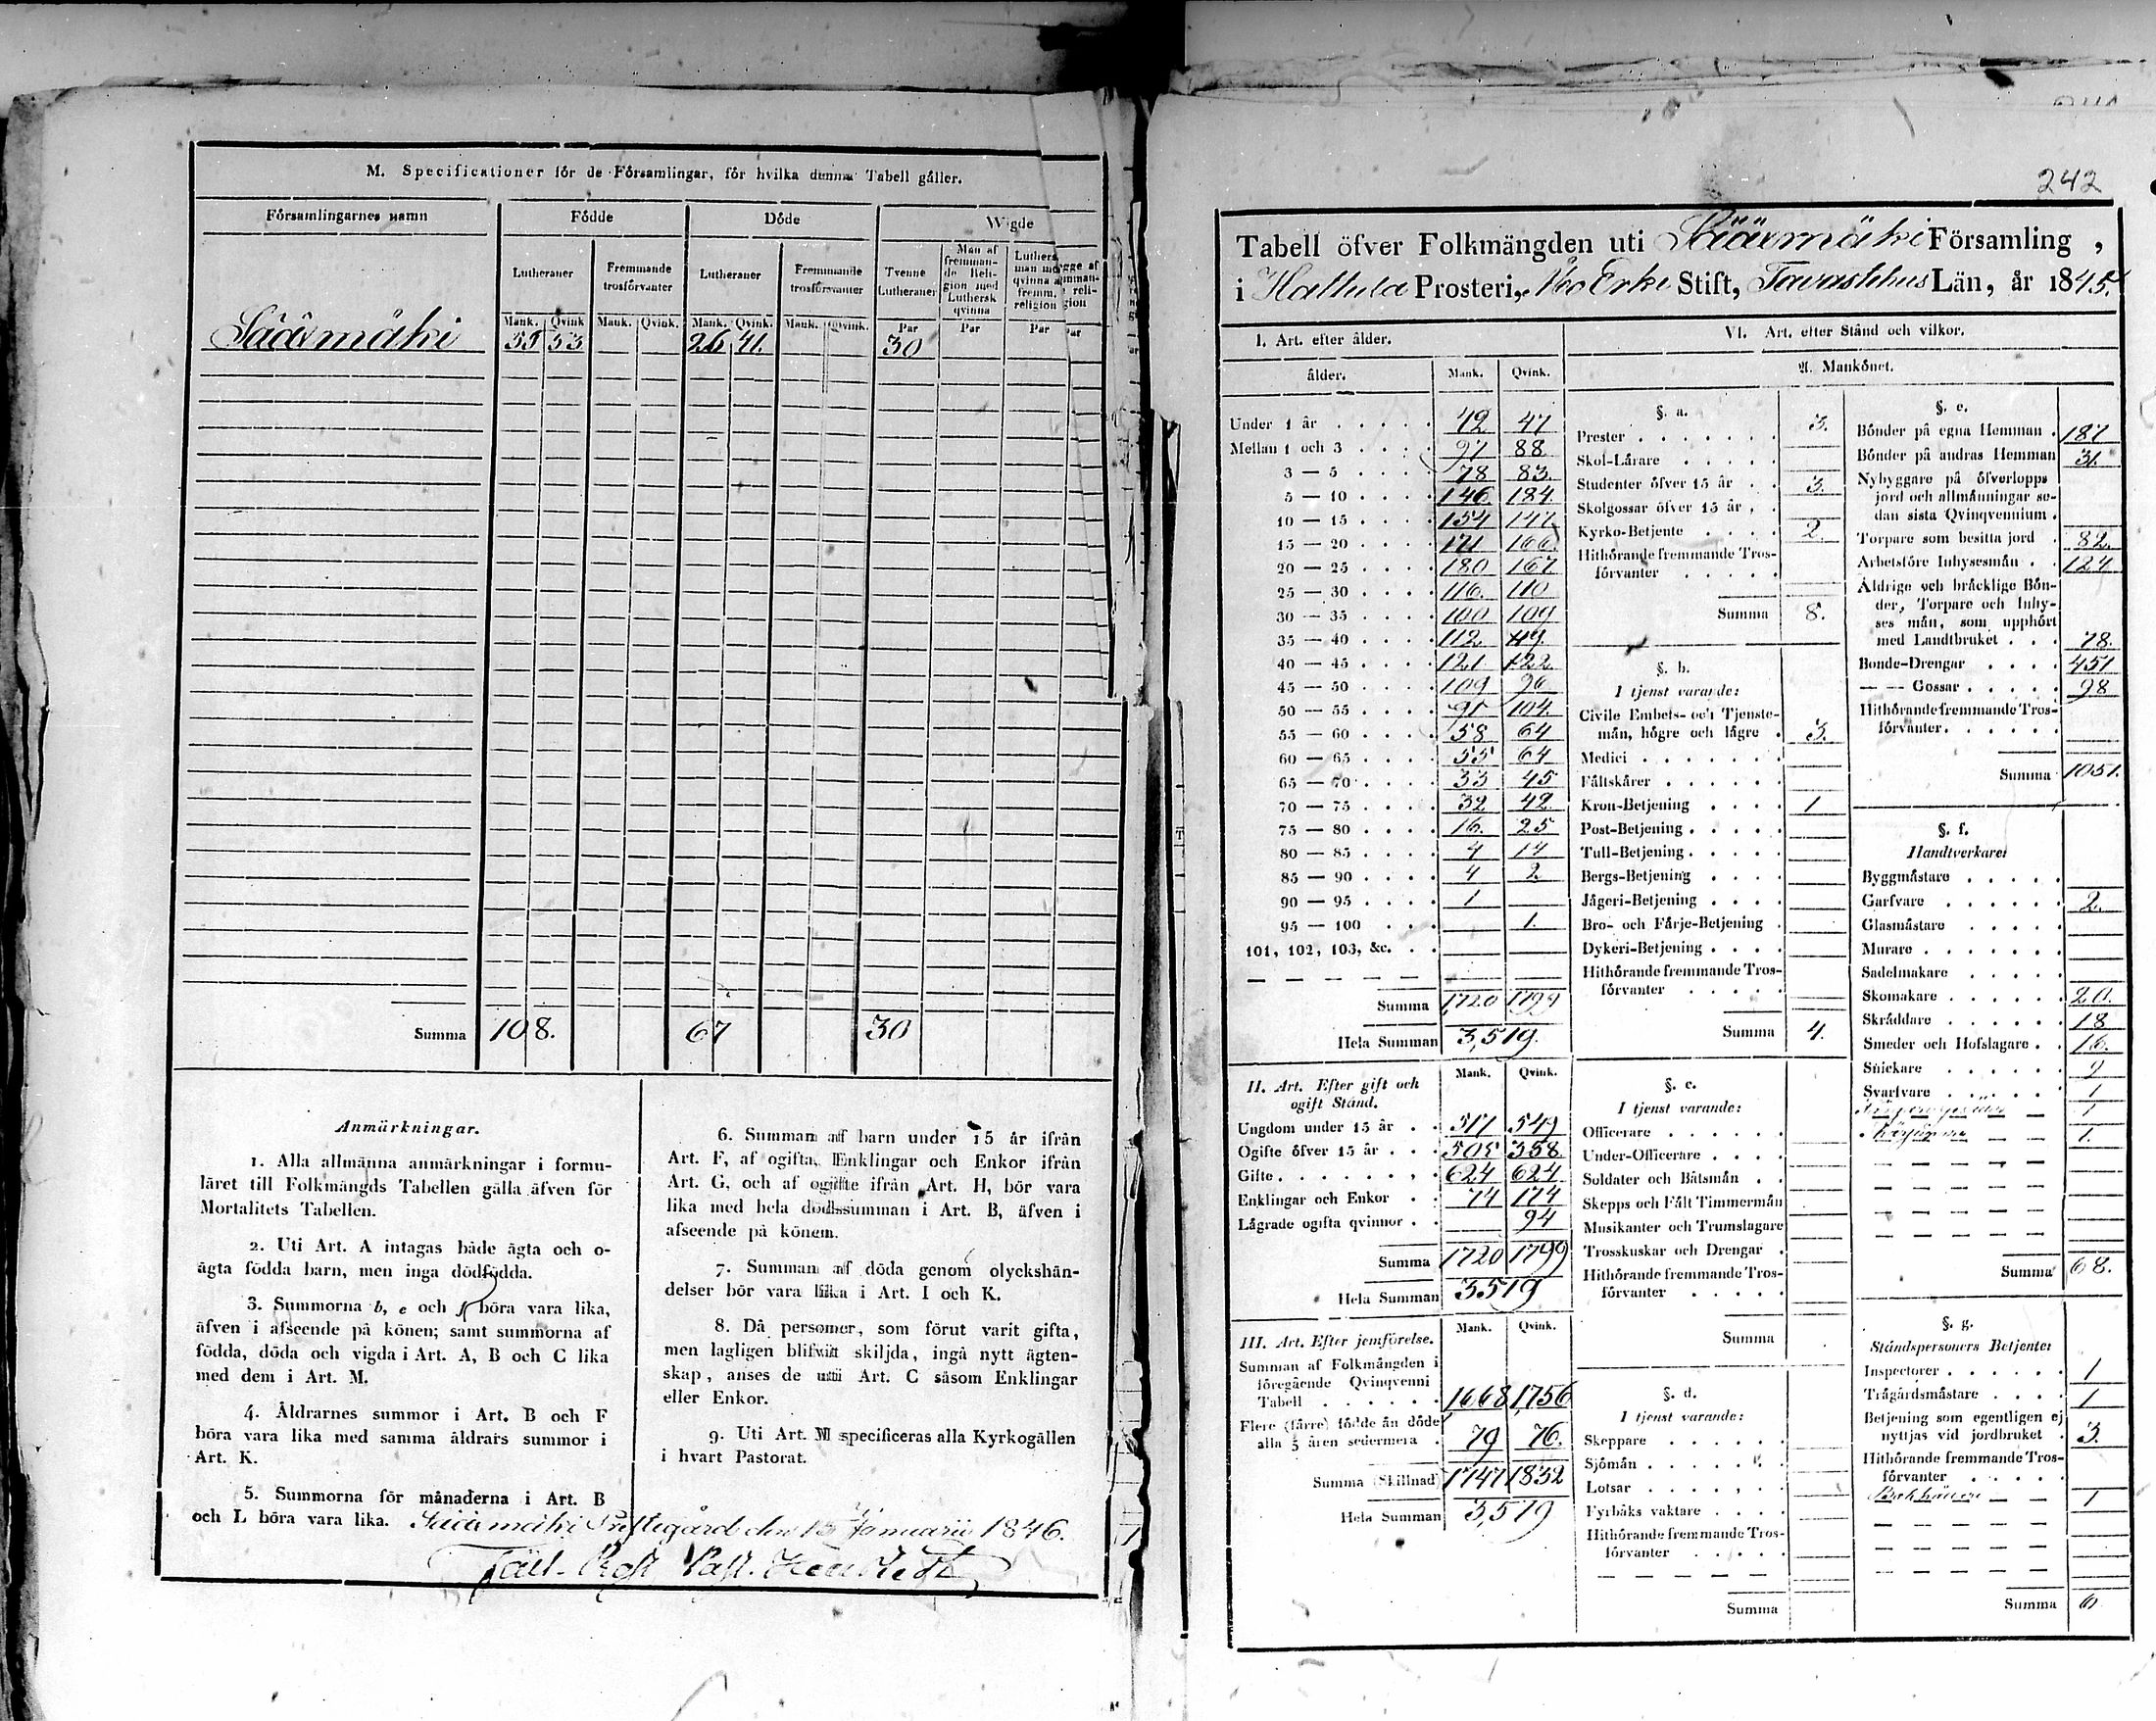 M. Specificationer för de Församlingar, för hvilka denna Tabell gäller.
Församlingarnes namn Födde Döde Wigde
Lutheraner Fremmande trosförvanter Lutheraner Fremmande trosförvanter Tvenne Lutheraner Man af fremmande Religion med Luthersk qvinna
Mank. Qvink Mank. Qvink. Mank. Qvink. Mank. Qvink. Par Par Par Par
Sääxmäki 55 53 26 41. 30
Summa 108. 67 30
Anmärkningar.
1. Alla allmänna anmärkningar i formu-
läret till Folkmängds Tabellen gälla äfven för
Mortalitets Tabellen.
2. Uti Art. A intagas både ägta och o-
ägta födda barn, men inga dödfödda.
3. Summorna b, e och f böra vara lika,
äfven i afseende på könen; samt summorna af
födda, döda och vigda i Art. A, B och C lika
med dem i Art. M.
4. Åldrarnes summor i Art. B och F
böra vara lika med samma åldrars summor i
Art. K.
5. Summorna för månaderna i Art. B
och L böra vara lika.
6. Summan af barn under 15 år ifrån
Art. F, af ogifta, Enklingar och Enkor ifrån
Art. G, och af ogifte ifrån Art. H, bör vara
lika med hela dödssumman i Art. B, äfven i
afseende på könen.
7. Summan af döda genom olyckshän-
delser bör vara lika i Art. I och K.
8. Då personer, som förut varit gifta,
men lagligen blifwit skiljda, ingå nytt ägten-
skap, anses de uti Art. C såsom Enklingar
eller Enkor.
9. Uti Art. M specificeras alla Kyrkogällen
i hvart Pastorat.
Sääxmäki Prestegård den 15 Januarii 1846.
242
Tabell öfver Folkmängden uti Sääxmäki Församling,
i Hattula Prosteri, Åbo Erke Stift, Tavastehus Län, år 1845.
I. Art. efter ålder.
ålder. Mank. Qvink.
Under 1 år 42 47
Mellan 1 och 3 97 88
3 — 5 78 83.
5 — 10 146 184.
10 — 15 154 147.
15 — 20 171 166.
20 — 25 180 167
25 — 30 116. 110
30 — 35 100 109
35 — 40 112 119
40 — 45 121 122
45 — 50 109 96
50 — 55 91 104.
55 — 60 58 64
60 — 65 55 64
65 — 70 33 45
70 — 75 32 42
75 — 80 16. 25
80 — 85 4 14
85 — 90 4 2.
90 — 95 1
95 — 100 1.
101, 102, 103, &c.
Summa 1720 1799
Hela Summan 3,519.
II. Art. Efter gift och
ogift Stånd.
Mank. Qvink.
Ungdom under 15 år 517 549
Ogifte öfver 15 år 505 358.
Gifte 624 624
Enklingar och Enkor 74 174
Lägrade ogifta qvinnor 94
Summa 1720 1799
Hela Summan 3519
III. Art. Efter jemförelse.
Mank. Qvink.
Summan af Folkmängden i
föregående Qvinqvenni
Tabell 1668 1,756
Flere (färre) födde än döde
alla 5 åren sedermera 79 76.
Summa (Skillnad) 1747 1832
Hela Summan 3,519
VI. Art. efter Stånd och vilkor.
A. Mankönet.
§. a.
Prester 3.
Skol-Lärare
Studenter öfver 15 år 3.
Skolgossar öfver 15 år
Kyrko-Betjente 2.
Hithörande fremmande Tros-
förvanter
Summa 8.
§. b.
I tjenst varande:
Civile Embets- och Tjenste-
män, högre och lägre 3.
Medici
Fältskärer
Kron-Betjening 1
Post-Betjening
Tull-Betjening
Bergs-Betjening
Jägeri-Betjening
Bro- och Färje-Betjening
Dykeri-Betjening
Hithörande fremmande Tros-
förvanter
Summa 4.
§. c.
I tjenst varande:
Officerare
Under-Officerare
Soldater och Båtsmän
Skepps och Fält Timmermän
Musikanter och Trumslagare
Trosskuskar och Drengar
Hithörande fremmande Tros-
förvanter
Summa
§. d.
I tjenst varande:
Skeppare
Sjömän
Lotsar
Fyrbåks vaktare
Hithörande fremmande Tros-
förvanter
Summa
§. e.
Bönder på egna Hemman 187
Bönder på andras Hemman 31.
Nybyggare på öfverlopps
jord och allmänningar se-
dan sista Qvinqvennium
Torpare som besitta jord 82.
Arbetsföre Inhysesmän 124
Åldrige och bräcklige Bön-
der, Torpare och Inhy-
ses män, som upphört
med Landtbruket 78.
Bonde-Drengar 451
— — Gossar 98
Hithörande fremmande Tros-
förvanter
Summa 1051.
§. f.
Handtverkare:
Byggmästare
Garfvare 2.
Glasmästare
Murare
Sadelmakare
Skomakare 20.
Skräddare 18
Smeder och Hofslagare 16.
Snickare 9
Svarfvare 1
1
1.
Summa 68.
§. g.
Ståndspersoners Betjente:
Inspectorer 1
Trägårdsmästare 1
Betjening som egentligen ej
nyttjas vid jordbruket 3.
Hithörande fremmande Tros-
förvanter
1
Summa 6